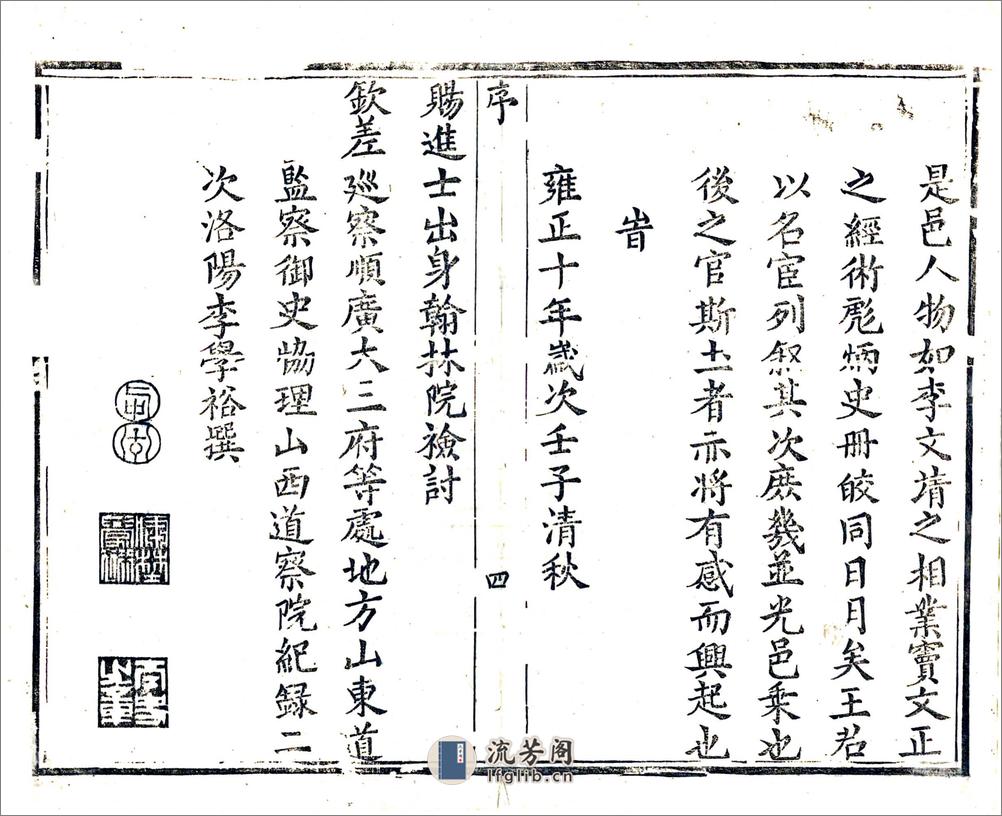 是邑人物如李文靖之相業竇文正
之經術彪炳史册皎同日月矣王君
以名宦列叙其次庶幾並光邑乗也
後之官斯土者亦將有感而興起也
旹
雍正十年歲次壬子清秋
序
四
賜進士出身翰林院檢討
欽差廵察順廣大三府等處地方山東道
監察御史協理山西道察院紀録二
次洛陽李學裕撰
流芳阁
lfglib.cn